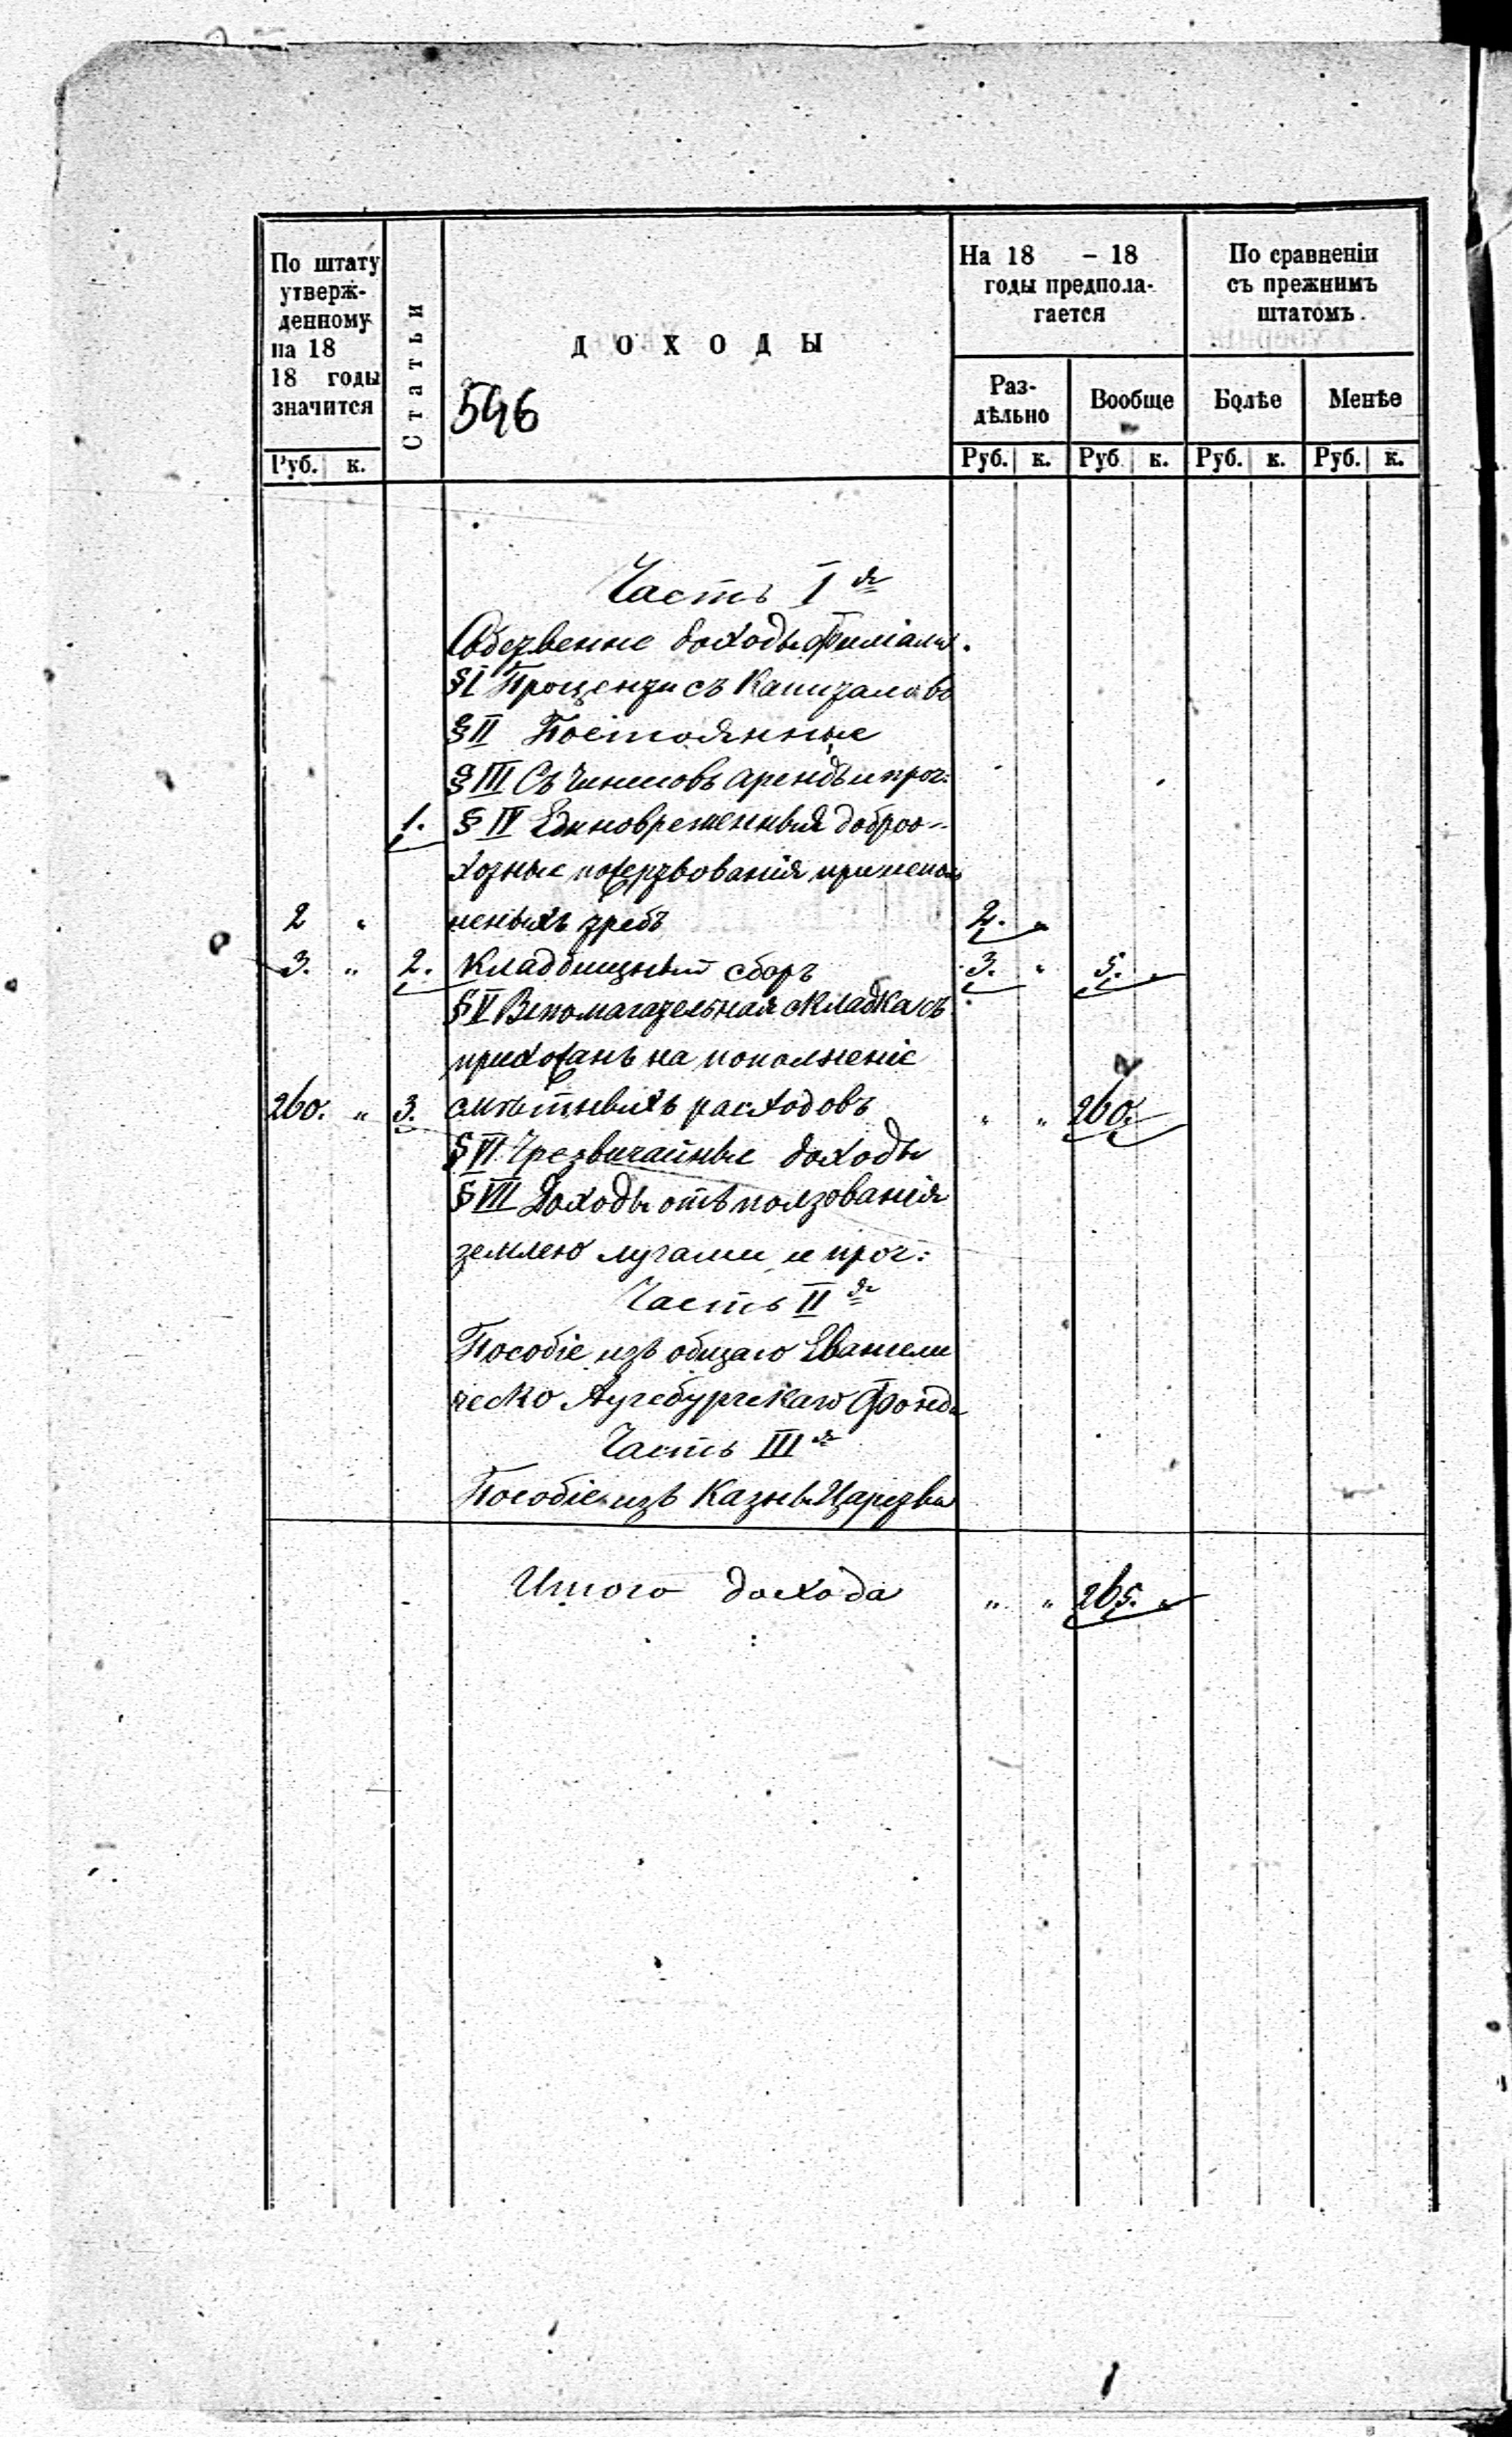 По штату
утверж-
денному
на 18
18 годы
значится
Руб. к.
Статьи
ДОХОДЫ
546
На 18 – 18
годы предпола-
гается
Раз-
дѣльно
Вообще
Руб. к. Руб к.
По сравненіи
съ прежнимъ
штатомъ.
Болѣе Менѣе
Руб. к. Руб. к.
Часть I я
Собственные доходы Филіала.
§ I Проценты съ Капиталовъ
§ II Постоянные
§ III Съ Чиншовъ арендъ и проч:
1. § IV Единовременныя доброо-
хотные пожертвования при
2 " неныхъ требъ 2. "
3. " 2. Кладбищный сборъ 3. " 5. "
§ V Вспомагательная складка съ
прихожанъ на пополненіе
260. " 3. смѣтныхъ расходовъ " " 260.
§ VI Чрезвычайные доходы
§ VII Доходы отъ ползованія
землею лугами и проч:
Часть II я
Пособіе изъ общаго Евангели
ческо Аугсбургскаго Фонда
Часть III я
Пособіе изъ Казны Царства
Итого дохода " " 265. "